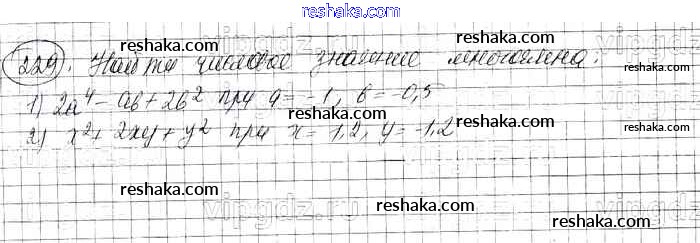 reshaka.com
229. Найти числовое значение многочлена:
reshaka.com reshaka.com
1) 2a⁴ - ab + 2b² при a = -1, b = -0,5
2) x² + 2xy + y² при x = 1,2, y = -1,2
reshaka.com reshaka.com
vipgdz.ru vipgdz
reshaka.com reshaka.com
reshaka.com